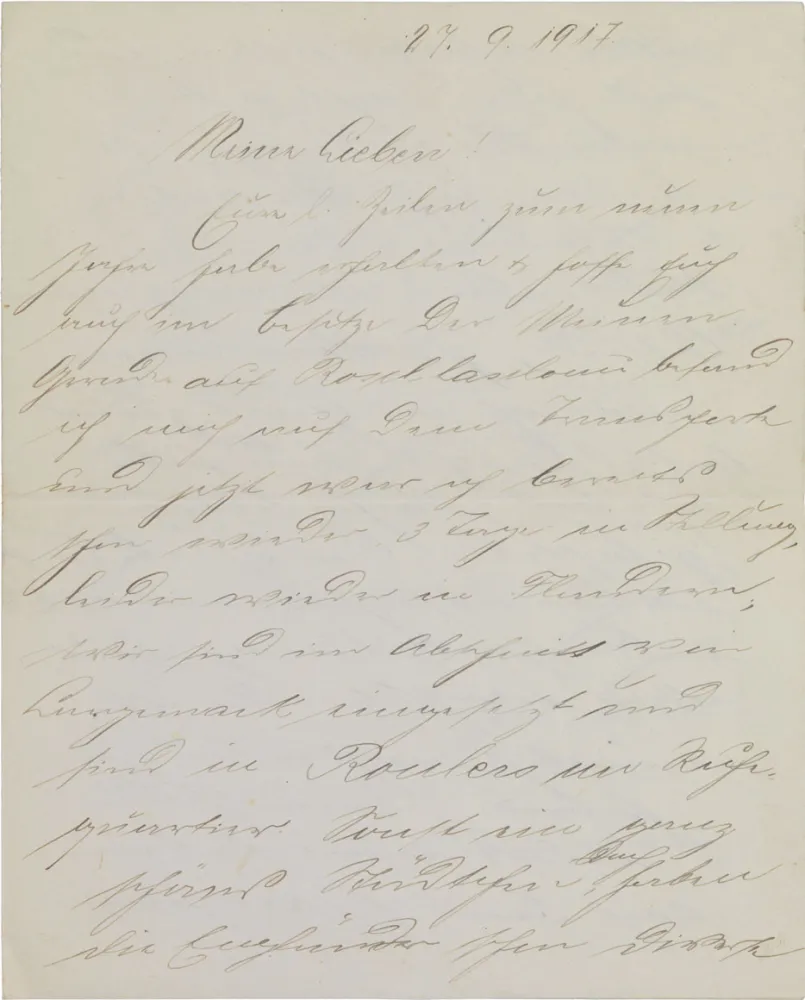 27. 9. 1917.
Meine Lieben!
Eure l. Zeilen zum neuen
Jahre habe erhalten & hoffe Euch
auch im Besitze der Meinen.
Gerade auf Rosch haschonu befand
ich mich auf dem Transporte
und jetzt war ich bereits
schon wieder 3 Tage in Stellung,
leider wieder in Flandern,
wir sind im Abschnitt von
Langemark eingesetzt und
sind in Roulers im Ruhe-
quartier. Sonst ein ganz
schönes Städtchen, doch haben
die Engländer schon diverse